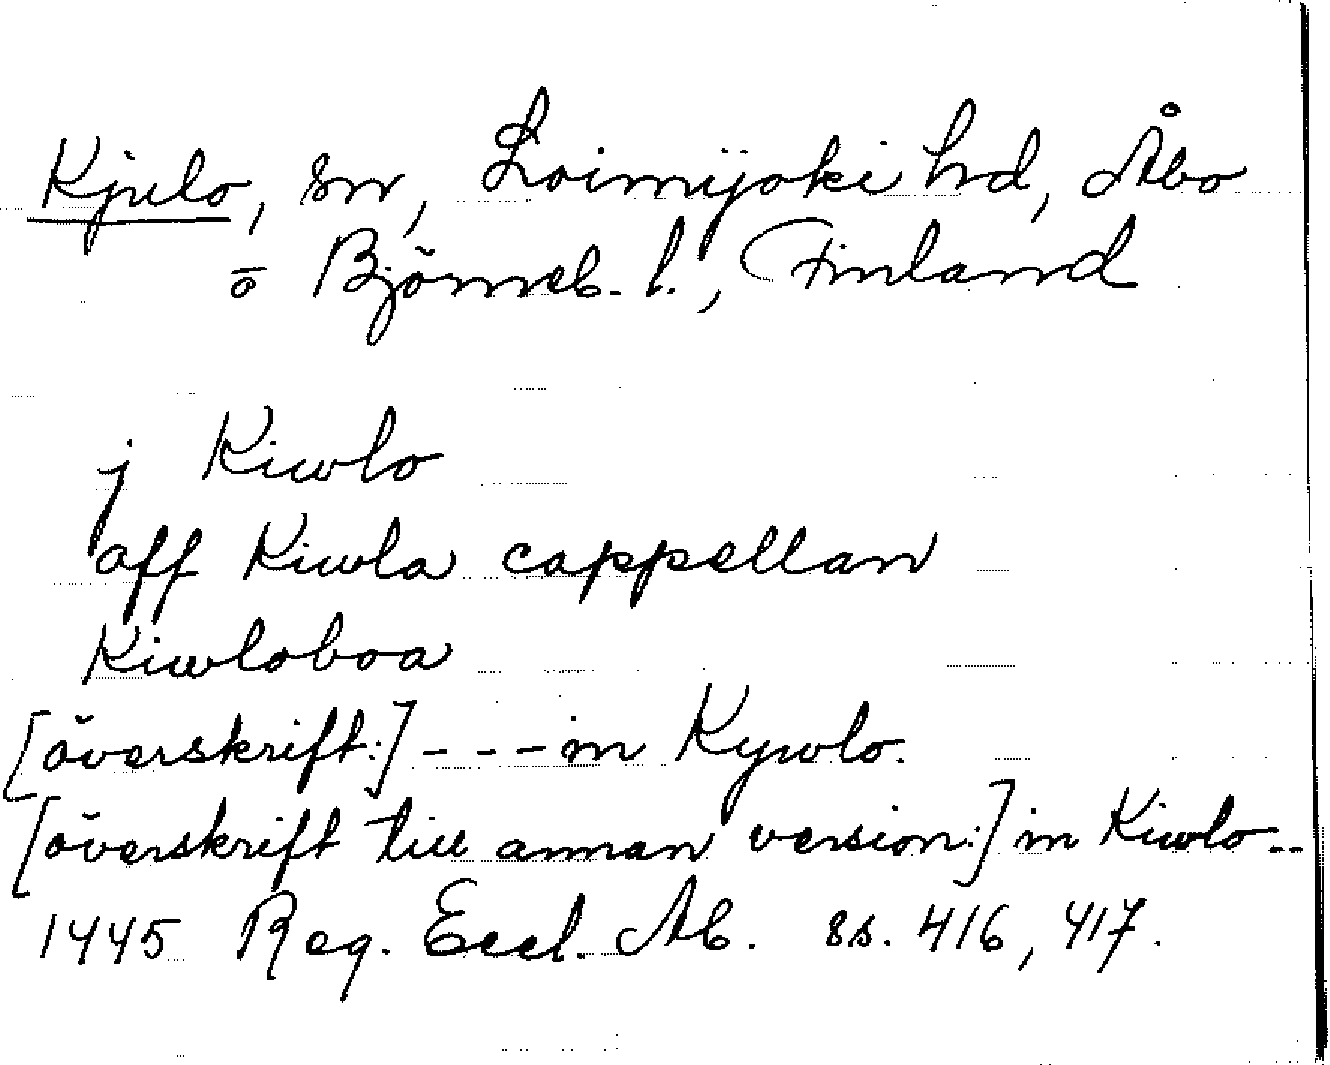 Kjulo, sn, Loimijoki hd, Åbo
o Björneb. l., Finland
j Kiwlo
aff Kiwla cappellan
Kiwloboa
[överskrift:] - - - in Kywlo.
[överskrift till annan version:] in Kiwlo --
1445 Reg. Eccl. Ab. ss. 416, 417.